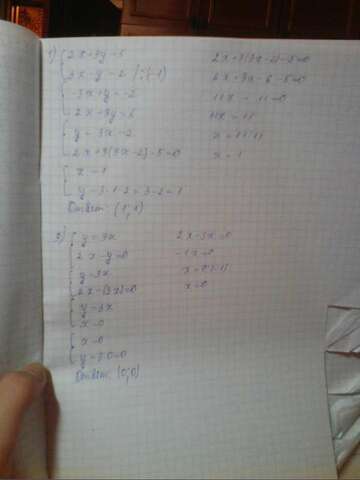 1) { 2x+3y=5
3x-y=2 |:(-1)
-3x+y=-2
2x+3y=5
y=3x-2
2x+3(3x-2)-5=0
x=1
y=3·1-2=3-2=1
Ответ: (1;1)
2x+3(3x-2)-5=0
2x+9x-6-5=0
11x-11=0
11x=11
x=11:11
x=1
2) { y=3x
2x-y=0
y=3x
2x-(3x)=0
y=3x
x=0
x=0
y=3·0=0
Ответ: (0;0)
2x-3x=0
-1x=0
x=0:(-1)
x=0